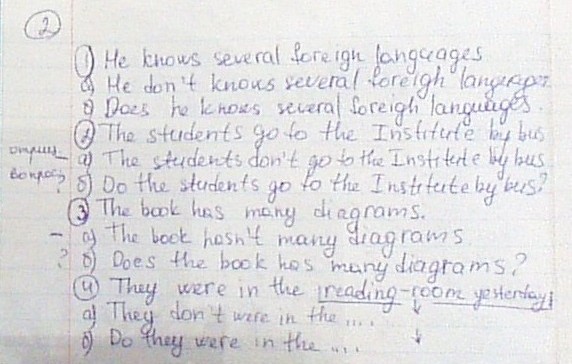 2
1) He knows several foreign languages
a) He don't knows several foreigh languages
б) Does he knows several foreigh languages.
2) The students go to the Institute by bus
отриц. a) The students don't go to the Institute by bus
вопрос ? б) Do the students go to the Institute by bus?
3) The book has many diagrams.
- a) The book hasn't many diagrams
? б) Does the book has many diagrams?
4) They were in the reading-room yesterday
a) They don't were in the ....
б) Do they were in the ....